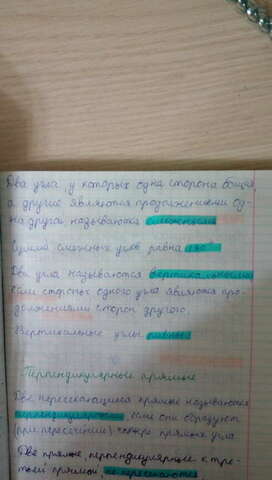 Два угла у которых одна сторона общая,
а другие являются продолжениями од-
на другой называются смежными
Сумма смежных углов равна 180°
Два угла называются вертикальными
если стороны одного угла являются про-
должениями сторон другого.
Вертикальные углы равны
Перпендикулярные прямые
Две пересекающиеся прямые называются
перпендикулярными, если они образуют
(при пересечении) четыре прямых угла
Две прямые, перпендикулярные к тре-
тьей прямой, не пересекаются